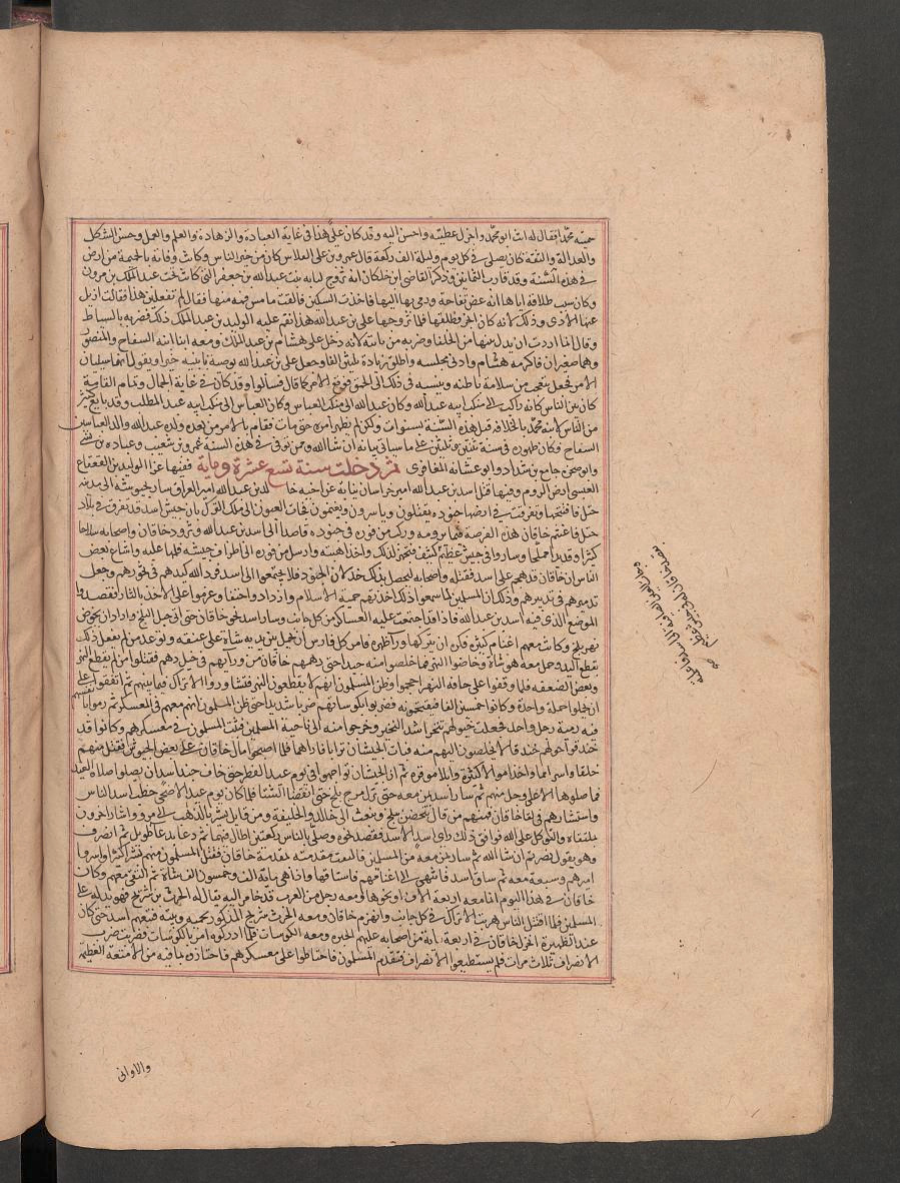 حبيه محمدا فقال له انت ابو محمد واجزل عطيته واحسن اليه وقد كان علي هذا في غاية العبادة والزهادة والعلم والعمل وحسن الشكل
والعدالة والثقة كان يصلي في كل يوم وليلة الف ركعة قال عمرو بن علي الفلاس كان من خيار الناس وكانت وفاته بالحميمة من ارض
في هذه السنة وقد قارب الثمانين وذكر القاضي ابن خلكان انه تزوج لبابة بنت عبد الله بن جعفر التي كانت تحت عبد الملك بن مروان
وكان سبب طلاقه اياها انه عض تفاحة ورمى بها اليها فاخذت السكين فالقت ما مس فمه منها فقال لم تفعلين هذا فقالت ازيل
عنها الاذى وذلك لانه كان ابخر وطلقها فلما تزوجها علي بن عبد الله هذا نقم عليه الوليد بن عبد الملك ذلك فضربه بالسياط
وقال انما اردت ان تذل بنيها من الخلفاء وضربه مرة ثانية لانه دخل على هشام بن عبد الملك ومعه ابنا ابنه السفاح والمنصور
وهما صغيران فاكرمه هشام وادنى مجلسه واطلق له مائة وثلثين الفا وجعل علي بن عبد الله يوصيه بابنيه خيرا ويقول انهما سيليان
الامر فجعل يتعجب من سلامة باطنه وينسبه في ذلك الى الحمق فوقع الامر كما قال قالوا وقد كان في غاية الجمال وتمام القامة
كان بين الناس كانه راكب الى منكب ابيه عبد الله وكان عبد الله الى منكب العباس وكان العباس الى منكب ابيه عبد المطلب وقد بايع كثير
من الناس لابنه محمد بالخلافة قبل هذه السنة بسنوات ولكن لم يظهر امره حتى مات فقام بالامر من بعده ولده عبد الله والد العباس
السفاح وكان ظهوره في سنة ثنتين وثلثين على ما سياتي بيانه ان شا الله وممن توفي في هذه السنة عمرو بن شعيب وعبادة بن نسي
وابو صخرة جامع بن شداد وابو عشانة المعافري ثم دخلت سنة تسع عشرة وماية ففيها غزا الوليد بن القعقاع
العبسي ارض الروم وفيها قتل اسد بن عبد الله امير خراسان نيابة عن اخيه خالد بن عبد الله امير العراق سار بجيوشه الى مدينة
ختل فافتتحها وتفرقت في ارضها جنوده يقتلون وياسرون ويغنمون فجات العيون الى ملك الترك بان جيش اسد قد تفرق في بلاد
ختل فاغتنم خاقان هذه الفرصة فسار من فوره وركب من فوره في جنوده قاصدا الى اسد بن عبد الله وتزود خاقان واصحابه سلاحا
كثيرا وقديدا وملحا وساروا في جيش عظيم
الناس ان خاقان قد هجم على اسد فقتله واصحابه ليحصل بذلك خذلان الجنود فلا يجتمعوا الى اسد فرد الله كيدهم في نحورهم وجعل
تدميرهم في تدبيرهم وذلك ان المسلمين لما سمعوا ذلك اخذتهم حمية الاسلام وازدادوا حنقا وعزموا على الاخذ بالثار فقصدوا
الموضع الذي فيه اسد بن عبد الله فاذا قد اجتمعت عليه العساكر من كل جانب وسار اسد نحو خاقان حتى اتى جبل الملح واراد ان يخوض
نهر بلخ وكانت معهم اغنام كثيرة فكره ان يتركها وراء ظهره فامر كل فارس ان يحمل بين يديه شاة على عنقه وتوعد من لم يفعل ذلك
بقطع اليد وحمل معه هو شاة وخاضوا النهر فما خلصوا منه جيدا حتى دهمهم خاقان من ورائهم في خيل دهم فقتلوا من لم يقطع النهر
وبعض الضعفة فلما وقفوا على حافة النهر احجموا وظن المسلمون انهم لا يقطعون النهر فتشاوروا الاتراك فيما بينهم ثم اتفقوا على
ان يحملوا حملة واحدة وكانوا خمسين الفا فيقتحمونه فضربوا بكوساتهم ضربا شديدا حتى ظن المسلمون انهم معهم في المعسكر ثم رموا بانفسهم
فيه رمية رجل واحد فجعلت خيولهم تنخر اشد النخير وخرجوا منه الى ناحية المسلمين فثبت المسلمون في معسكرهم وكانوا قد
خندقوا حولهم خندقا لا يخلصون اليهم منه فبات الجيشان تراءا ناراهما فلما اصبحوا مال خاقان على بعض الجيوش فقتل منهم
خلقا واسر امما واخذ اموالا كثيرة وابلا موقرة ثم ان الجيشان تواجهوا في يوم عيد الفطر حتى خاف جند اسد ان يصلوا صلاة العيد
فما صلوها الا على وجل منهم ثم سار اسد بمن معه حتى نزل مرج بلخ حتى انقضا الشتا فلما كان يوم عيد الاضحى خطب اسد الناس
واستشارهم في لقا خاقان فمنهم من قال نتحصن ببلخ ونبعث الى خالد والخليفة ومن قايل يشير بالذهاب الى مرو واشار اخرون
بملتقاه والتوكل على الله فوافق ذلك راي اسد الاسد فقصد نحوه وصلى بالناس ركعتين اطال فيهما ثم دعا بدعا طويل ثم انصرف
وهو يقول نصرتم ان شا الله ثم سار بمن معه من المسلمين فالتقت مقدمته بمقدمة خاقان فقتل المسلمون منهم بشرا كثيرا واسروا
اميرهم وسبعة معه ثم ساق اسد فانتهى الى اغنامهم فاستاقها واذا هي ماية الف وخمسون الف شاة ثم التقى معهم وكان
خاقان في هذا اليوم انما معه اربعة الاف او نحوها ومعه رجل من العرب قد خامر اليه يقال له الحرث بن شريح فهو يدله على
المسلمين فلما اقتتل الناس هربت الاتراك في كل جانب وانهزم خاقان ومعه الحرث بن شريح المذكور يحميه ويتبعه فتبعهم اسد حتى كان
عند الظهيرة انخزل خاقان في اربعماية من اصحابه عليهم الخز ومعه الكوسات فلما ادركوه امر بالكوسات فضربت ضرب
الانصراف ثلاث مرات فلم يستطيعوا الانصراف فتقدم المسلمون فاحتاطوا على معسكرهم فاحتازوه بما فيه من الامتعة العظيمة
والاواني